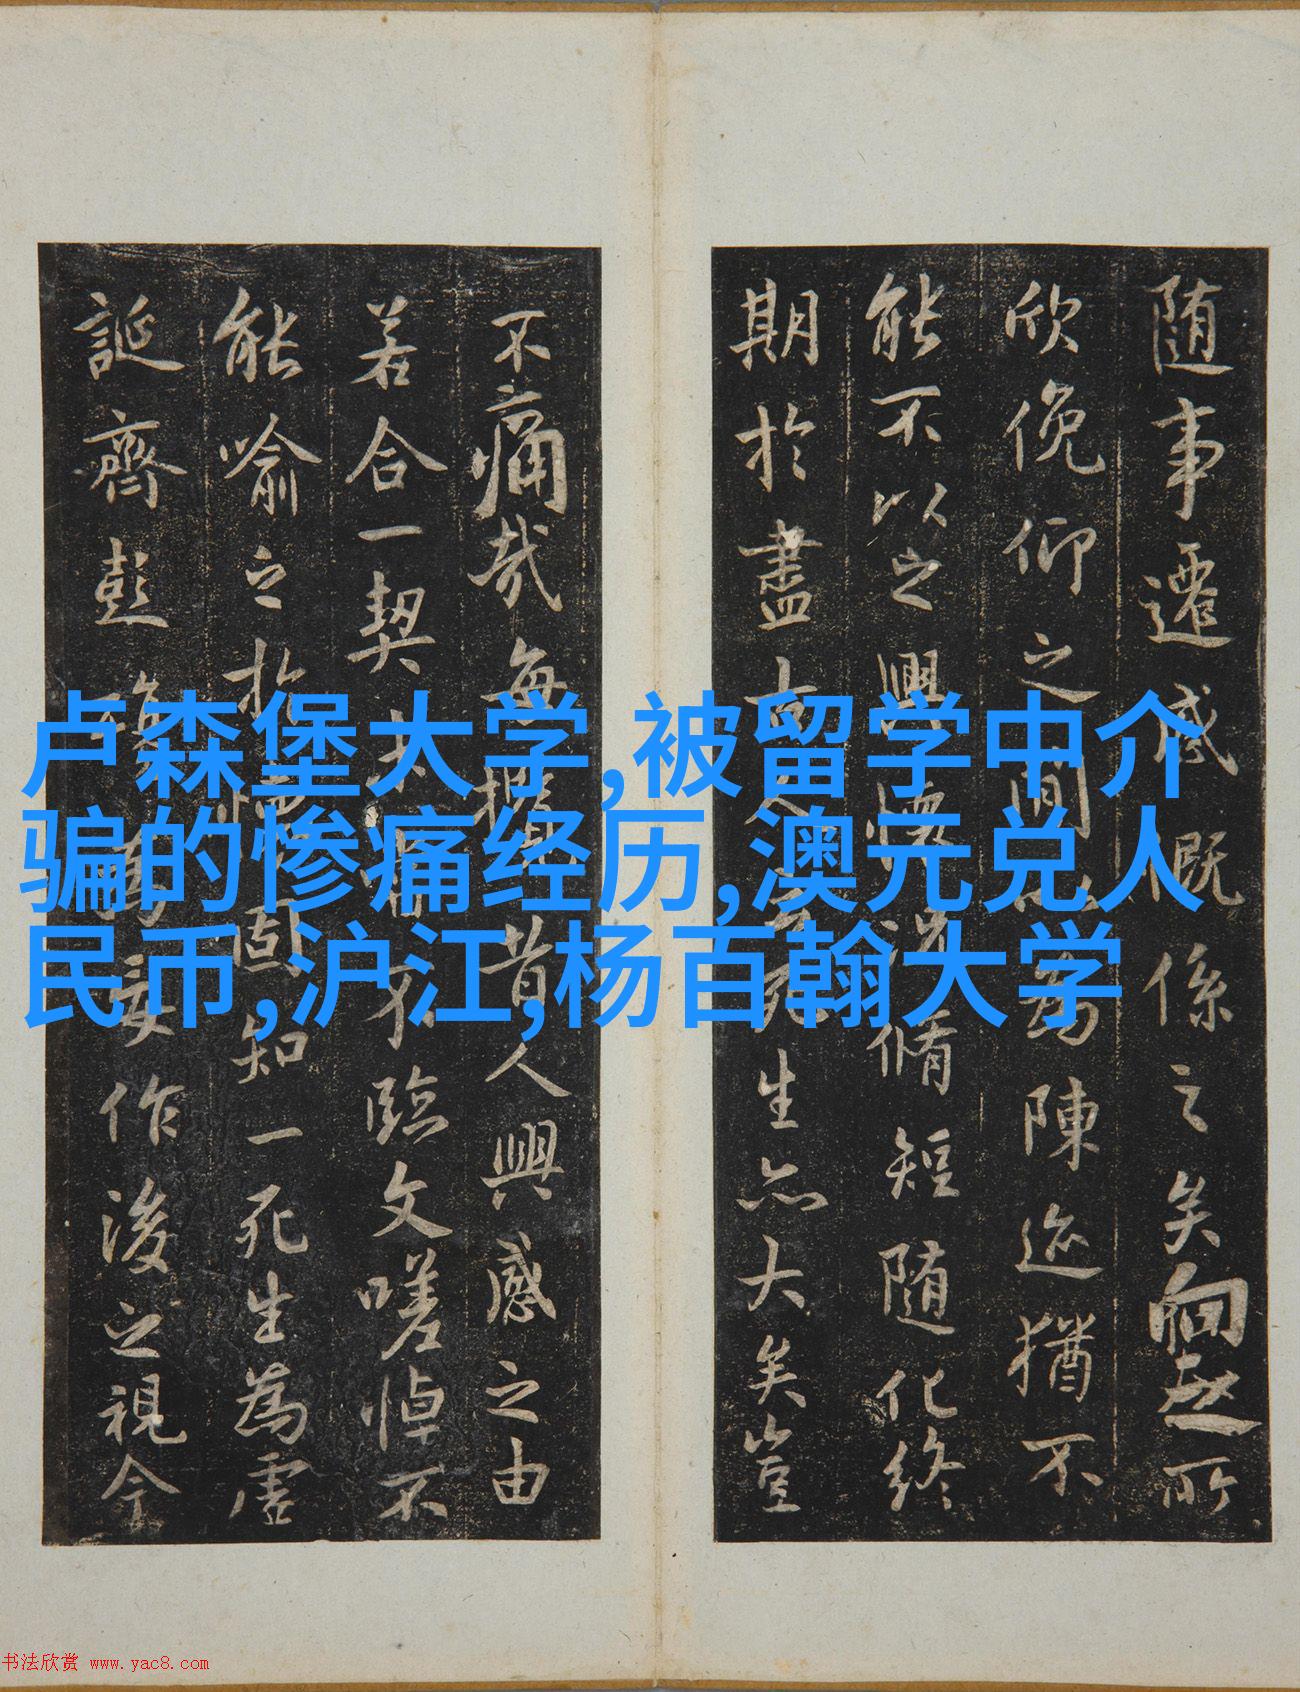 卢森堡大学,被留学中介
骗的惨痛经历,澳元兑人
民币,沪江,杨百翰大学
随事遷感慨係之矣向之所
欣俛仰之間以為陳迹猶不
能不以之興懷況脩短随化終
期於盡古人云死生亦大矣豈
不痛哉每攬昔人興感之由
若合一契未嘗不臨文嗟悼不
能喻之於懷固知一死生為虛
誕齊彭殤為妄作後之視今
书法欣赏 www.yac8.com